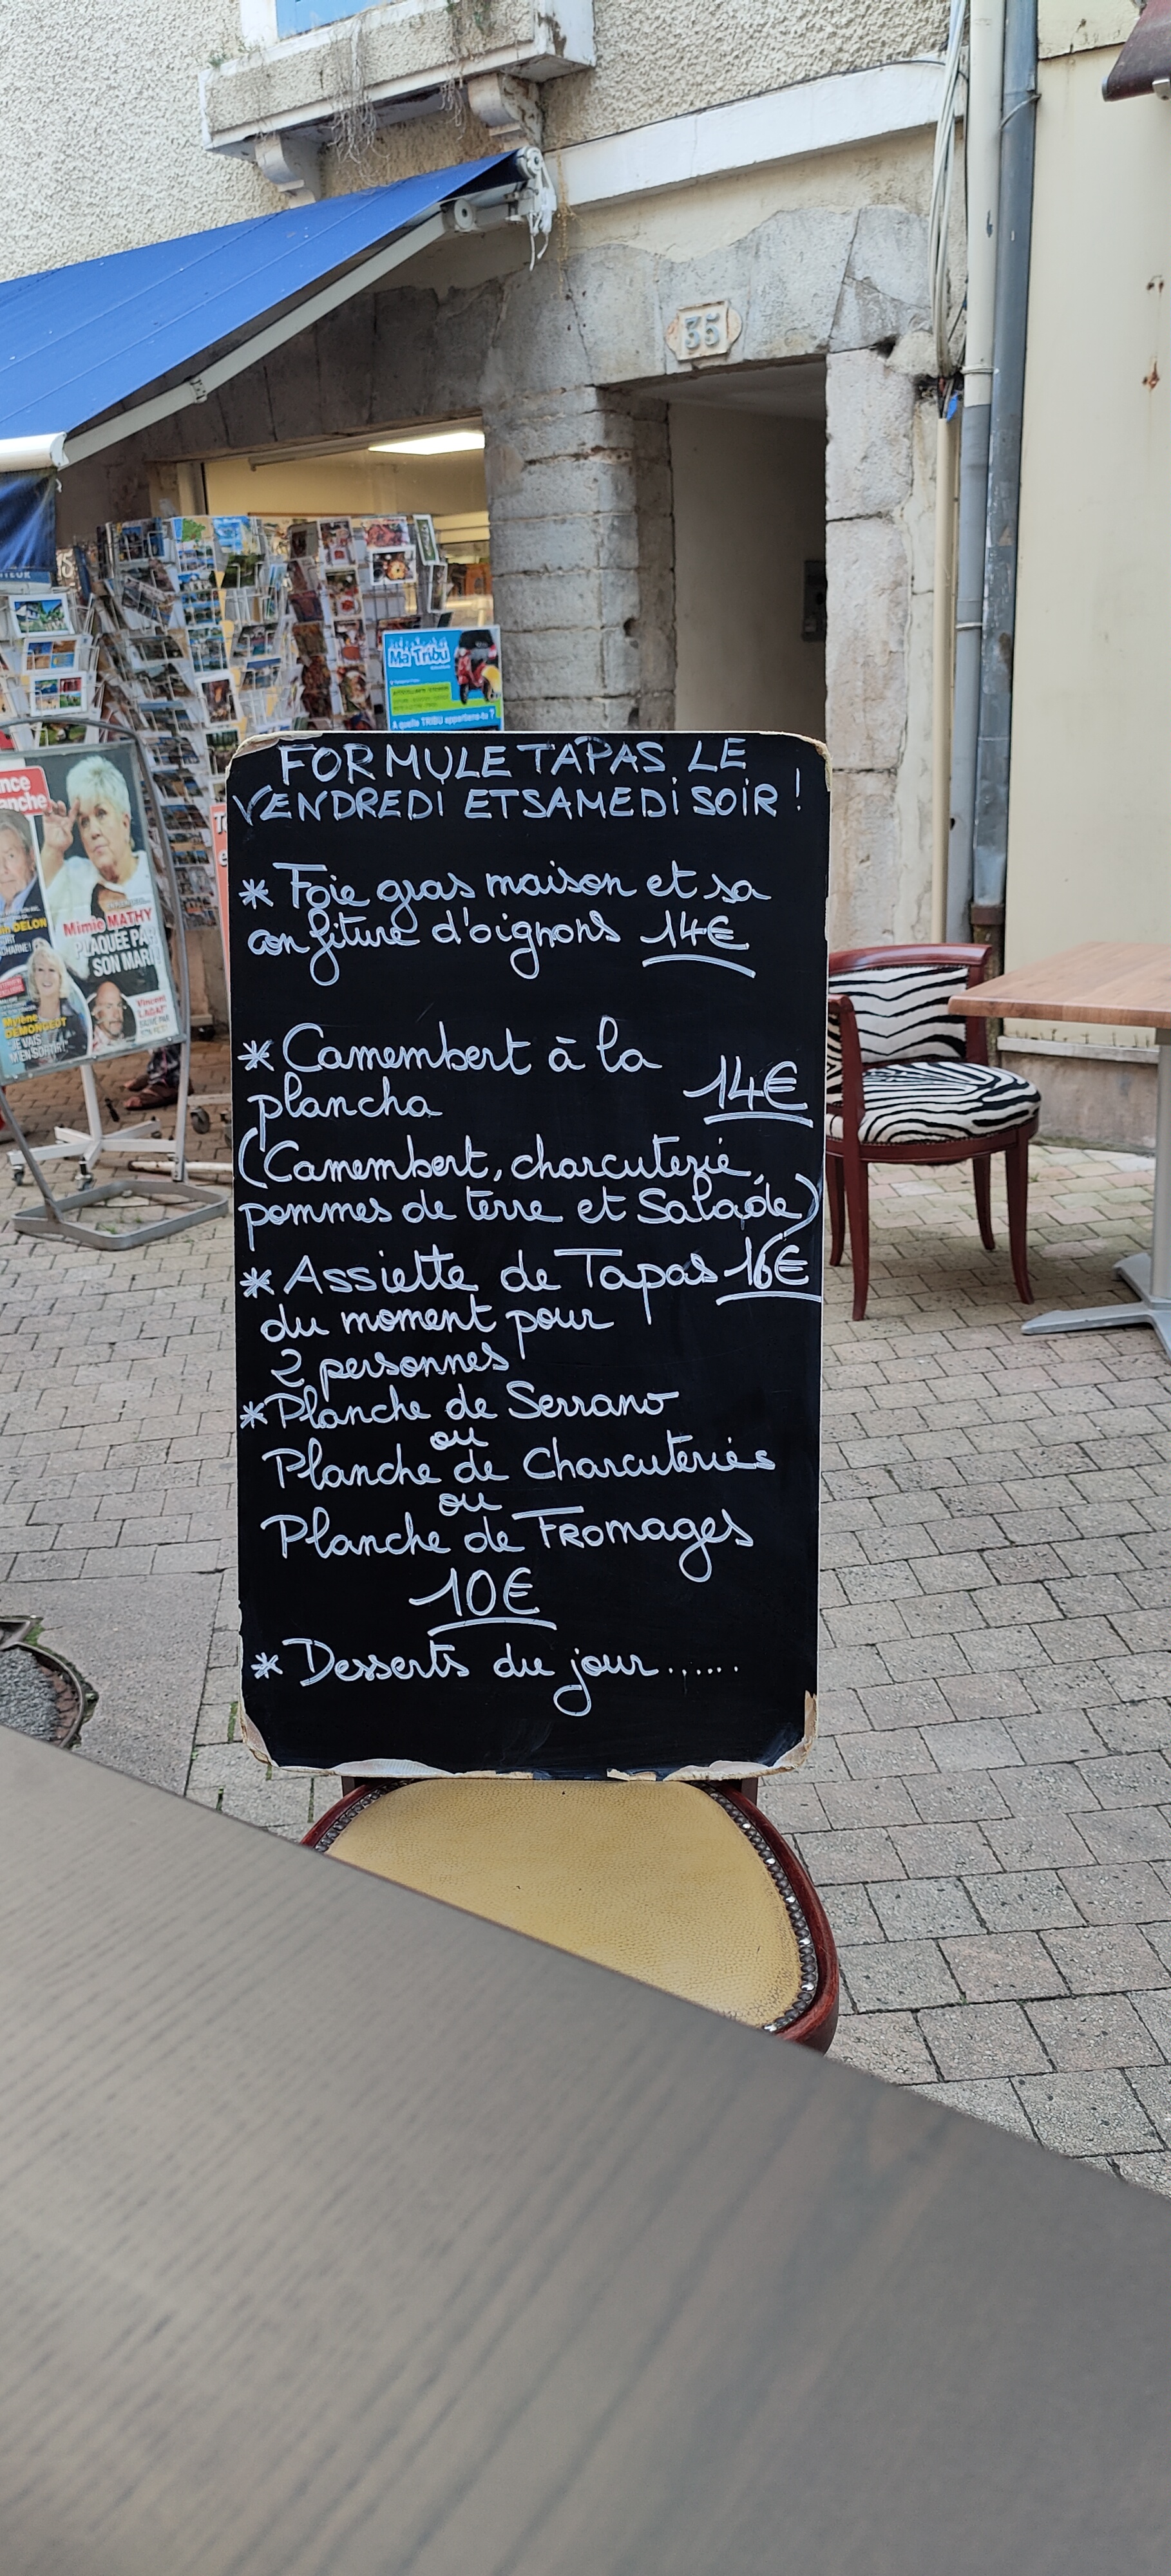 35
Ma Tribu
A quelle TRIBU appartiens-tu ?
Mimie MATHY
PLAQUÉE PAR
SON MARI
DELON
Mylène
DEMONGEOT
"JE VAIS
M'EN SORTIR!"
Vincent
LAGAF'
FORMULE TAPAS LE
VENDREDI ET SAMEDI SOIR !
* Foie gras maison et sa
confiture d'oignons 14€
* Camembert à la
plancha 14€
(Camembert, charcuterie,
pommes de terre et Salade)
* Assiette de Tapas 16€
du moment pour
2 personnes
* Planche de Serrano
ou
Planche de Charcuteries
ou
Planche de Fromages
10€
* Desserts du jour.......